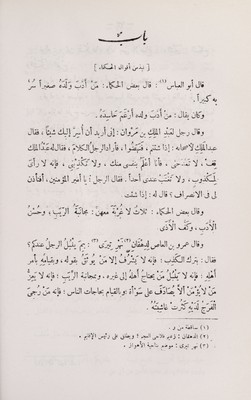 باب
[ نبذ من أقوال الحكماء ]
قال أبو العباس (١) : قال بعض الحكماء : مَنْ أَدَّبَ وَلَدَهُ صغيراً سُرَّ
به كبيراً .
وكان يقال : مَنْ أدّب ولده أرغم حاسِدَه .
وقال رجل لعبد الملك بن مروان : إني أريد أن أسِرَّ إليك شيئاً ، فقال
عبد الملك لأصحابه : إذا شئتم ، فنهضوا ، فأراد الرجل الكلام ، فقال له عبد الملك
قف ، لا تمدحني ، فأنا أعلم بنفسي منك ، ولا تكذبني ، فإنه لا رأي
لمكذوب ، ولا تغتب عندي أحداً . فقال الرجل : يا أمير المؤمنين ، أفتأذن
لي في الانصراف ؟ قال له : إذا شئت
وقال بعض الحكماء : ثلاث لا غربة معهن : مجانبة الريب ، وحسن
الأدب ، وكف الأذى
وقال عمرو بن العاص لدهقان (٢) نهر تيري (٣) : بم ينبل الرجل عندكم ؟
فقال : بترك الكذب : فإنه لا يشرف إلا من يوثق بقوله ، وبقيامه بأمر
أهله : فإنه لا ينبل من يحتاج أهله إلى غيره . وبمجانبة الريب : فإنه لا يعز
من لا يؤمن أن يصادف على سوأة ، وبالقيام بحاجات الناس : فإنه من رجي
الفرج لديه كثرت غاشيته
(١) ساقطة من و .
(٢) الدهقان : زعيم فلاحي العجم ؛ ويطلق على رئيس الإقليم .
(٣) نهر تيري : موضع بناحية الأهواز .